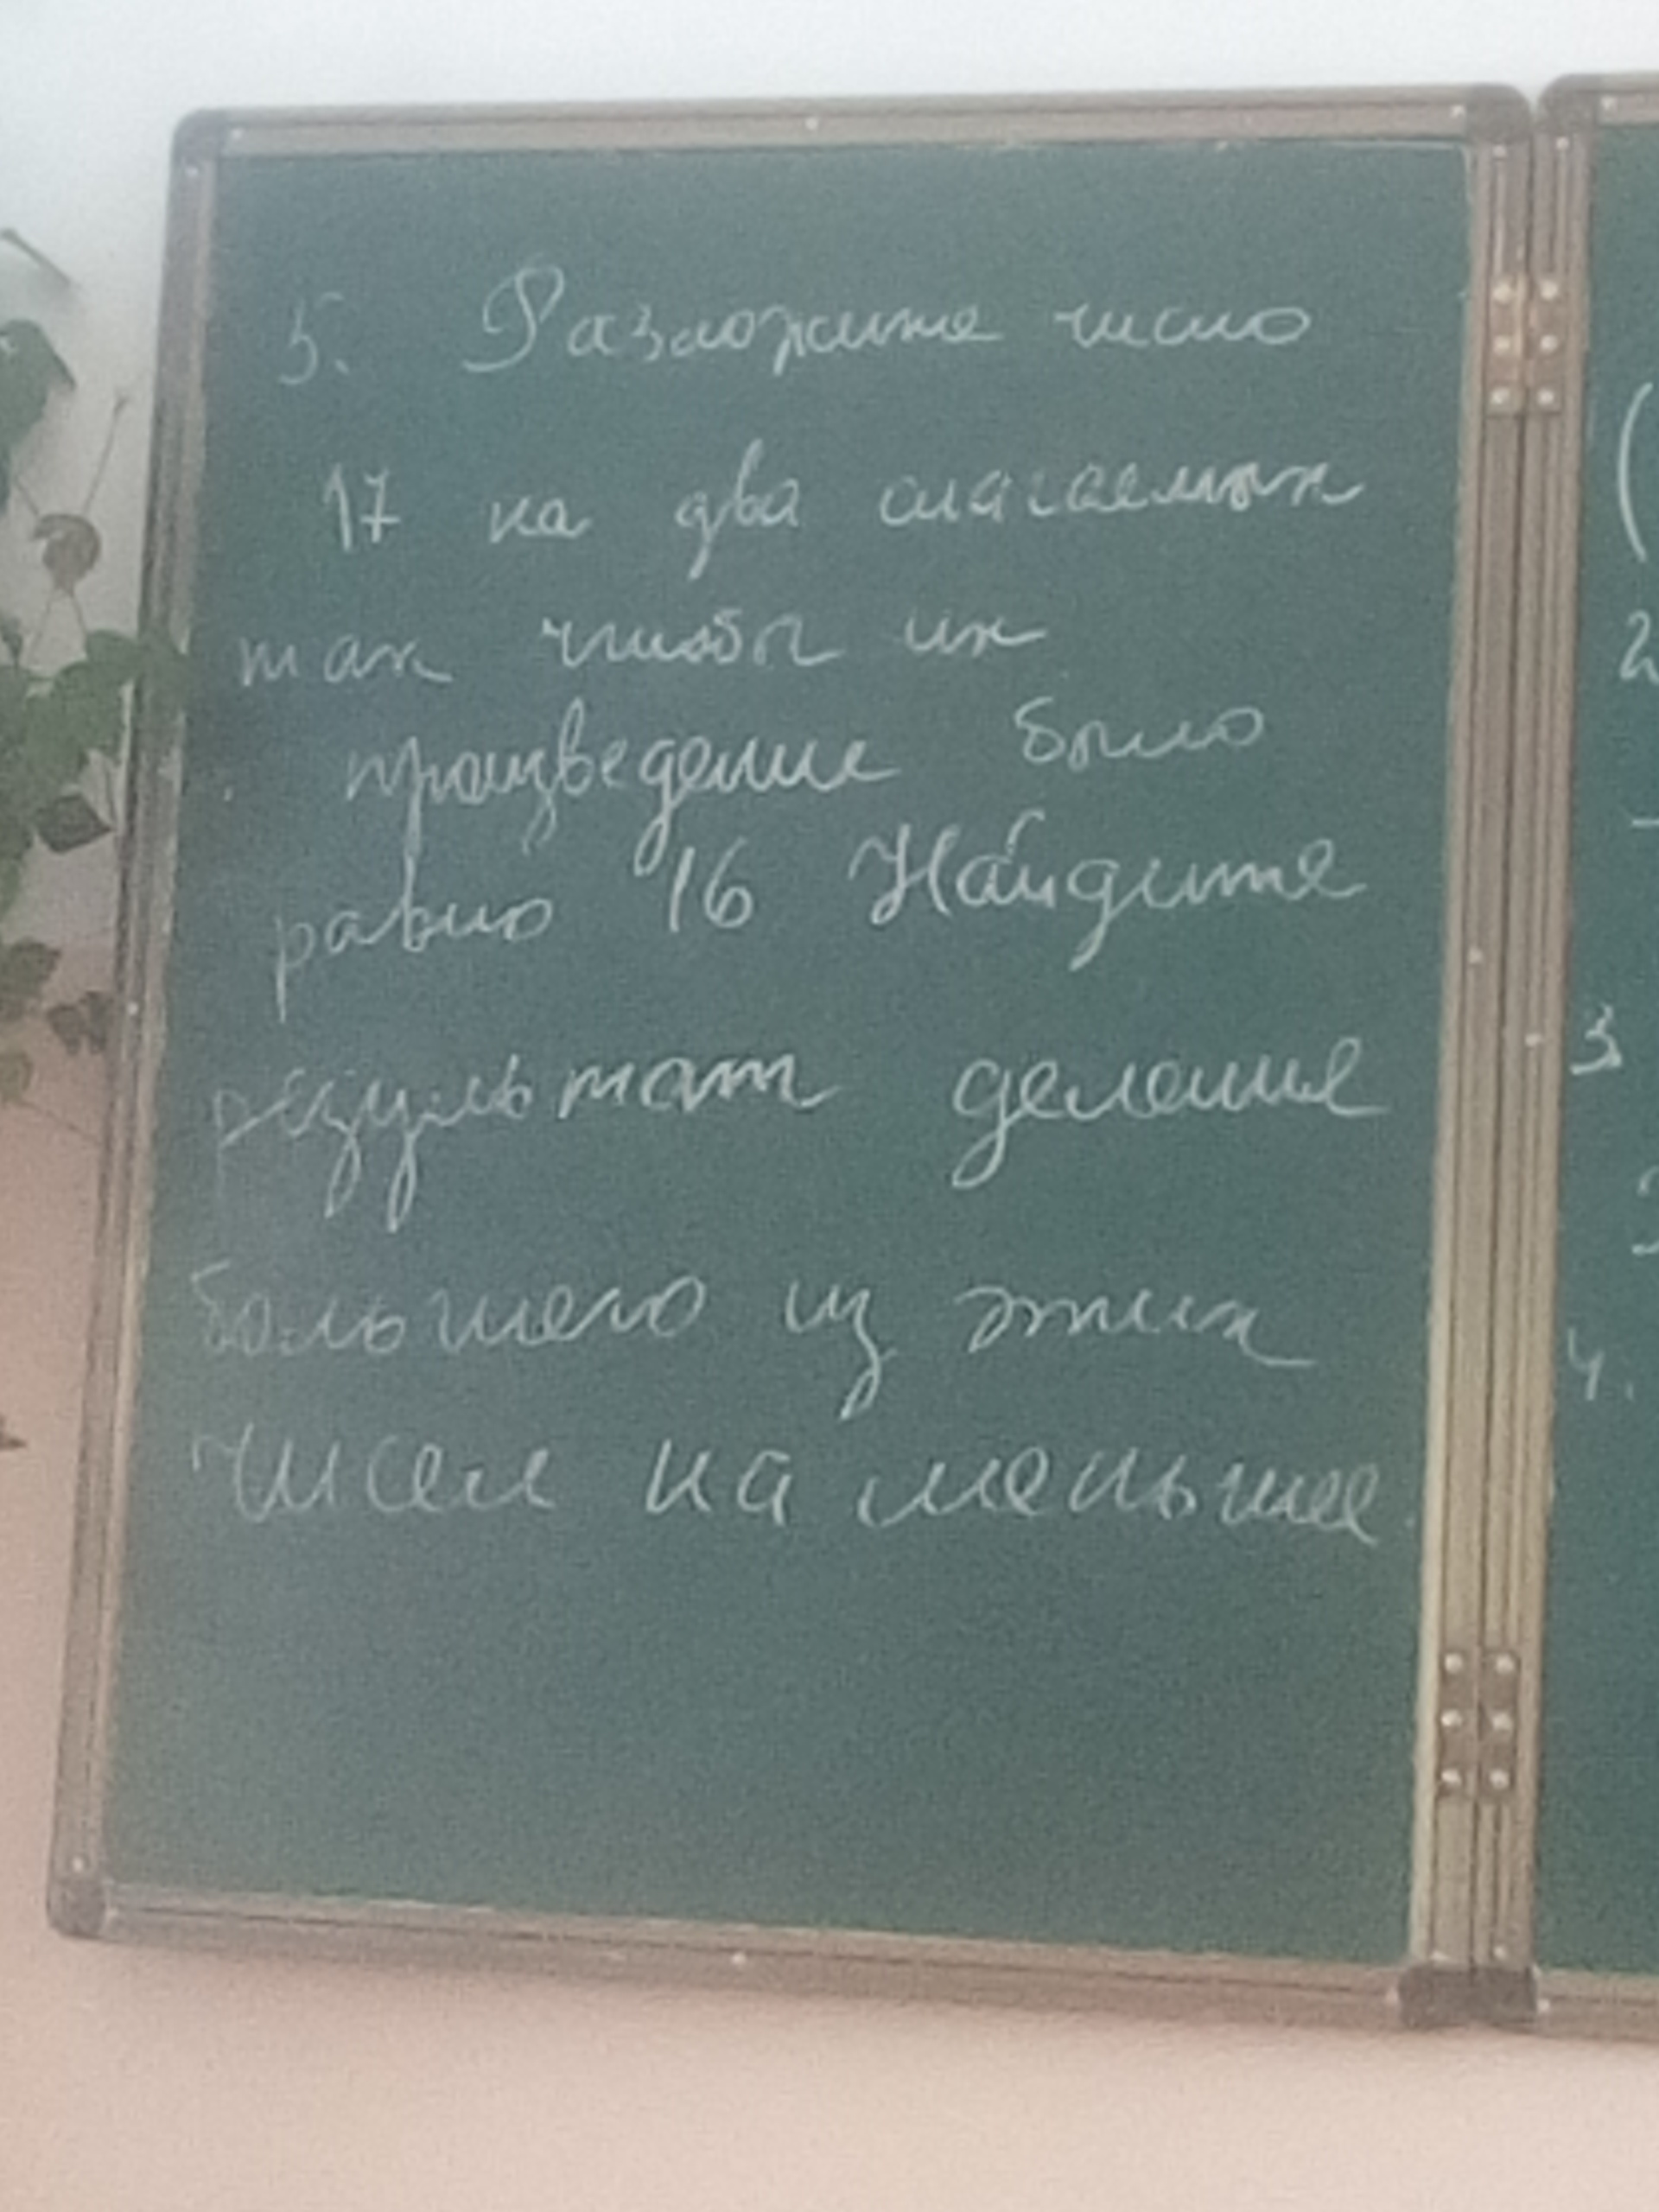 5. Разложите число
17 на два слагаемых
так чтобы их
произведение было
равно 16 Найдите
результат деление
большего из этих
чисел на меньшее.
(
2
3
4.